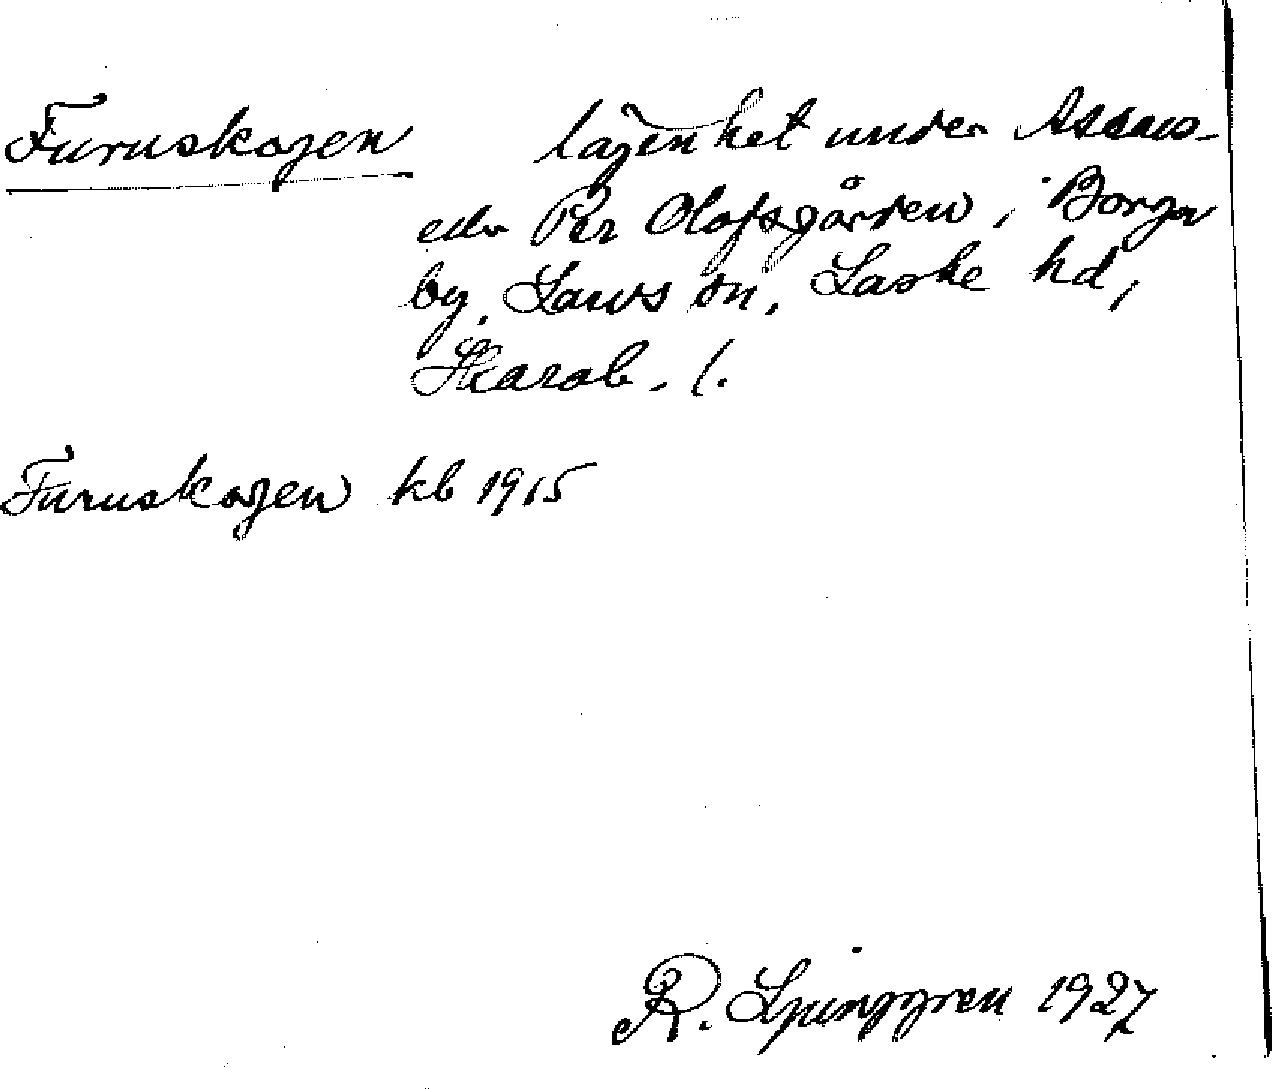 Furuskogen lägenhet under Assars-
eller Per Olofsgården, Borga
by, Laws sn, Laske hd,
Skarab. l.
Furuskogen kb 1915
R. Ljunggren 1927